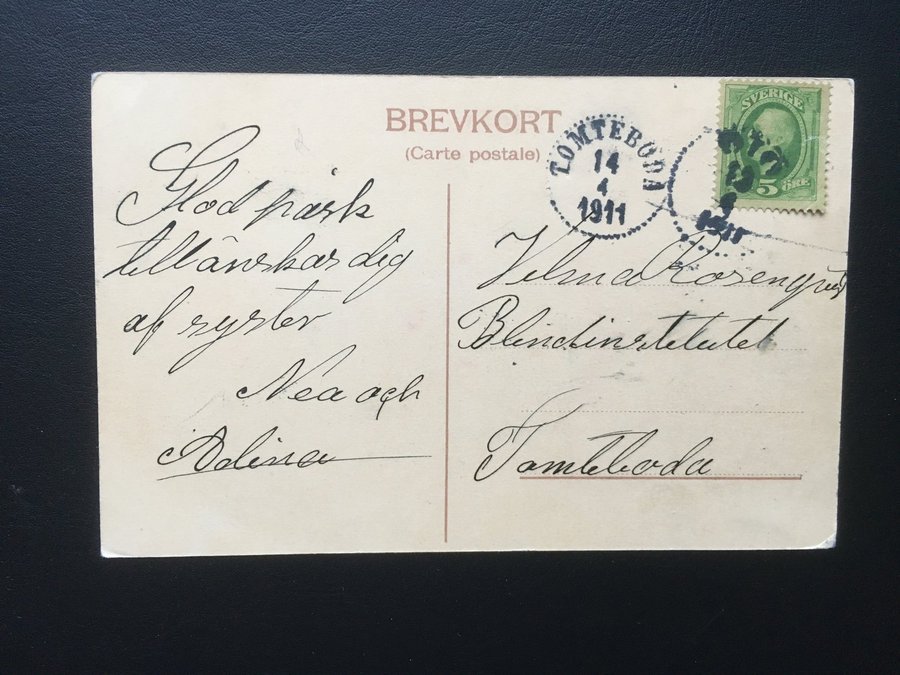 BREVKORT
(Carte postale)
SVERIGE
5 ÖRE
TOMTEBODA
14
4
1911
Glad påsk
tillönskas dig
af syster
Nea och
Adina
Velma Rosenqvist
Blindinstitutet
Tomteboda